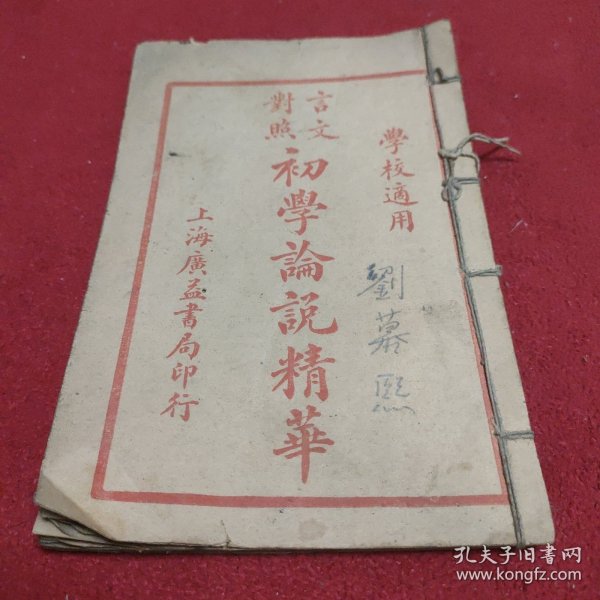 學校適用
言文
對照
初學論説精華
上海廣益書局印行
劉慕熙
孔夫子旧书网
www.kongfz.com